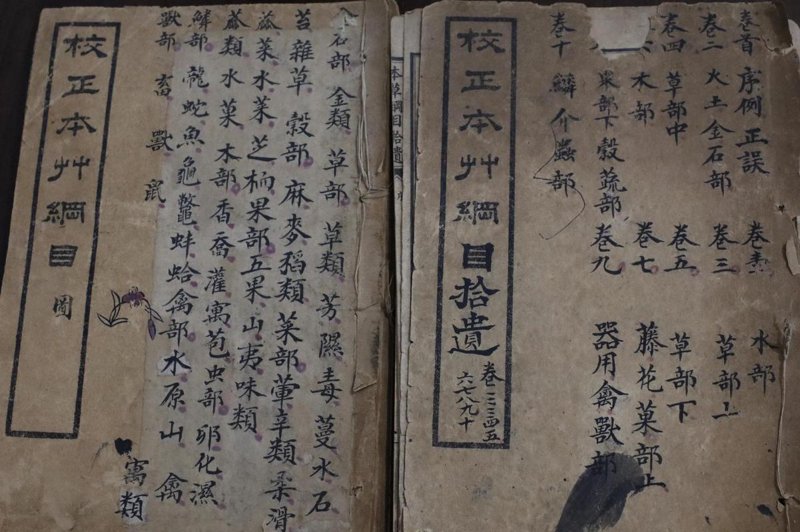 卷首 序例 正誤 卷壹 水部
卷二 火土金石部 卷三 草部上
卷四 草部中 卷五 草部下
木部 卷七 藤花菓部上
菓部下穀蔬部 卷九 器用禽獸部
卷十 鱗介蟲部
校正本艸綱目拾遺 卷一二三四五
六七八九十
本草綱目拾遺
石部 金類 草部 草類 芳隰毒蔓水石
苔雜草 穀部 麻麥稻類 菜部葷辛類柔滑
蓏菜水菜芝栭果部五果 山夷味類
蓏類水菓木部香喬灌寓苞虫部卵化濕
鱗部 龍蛇魚龜鼈蚌蛤禽部水原山禽
獸部 畜獸鼠 寓類
校正本艸綱目 圖